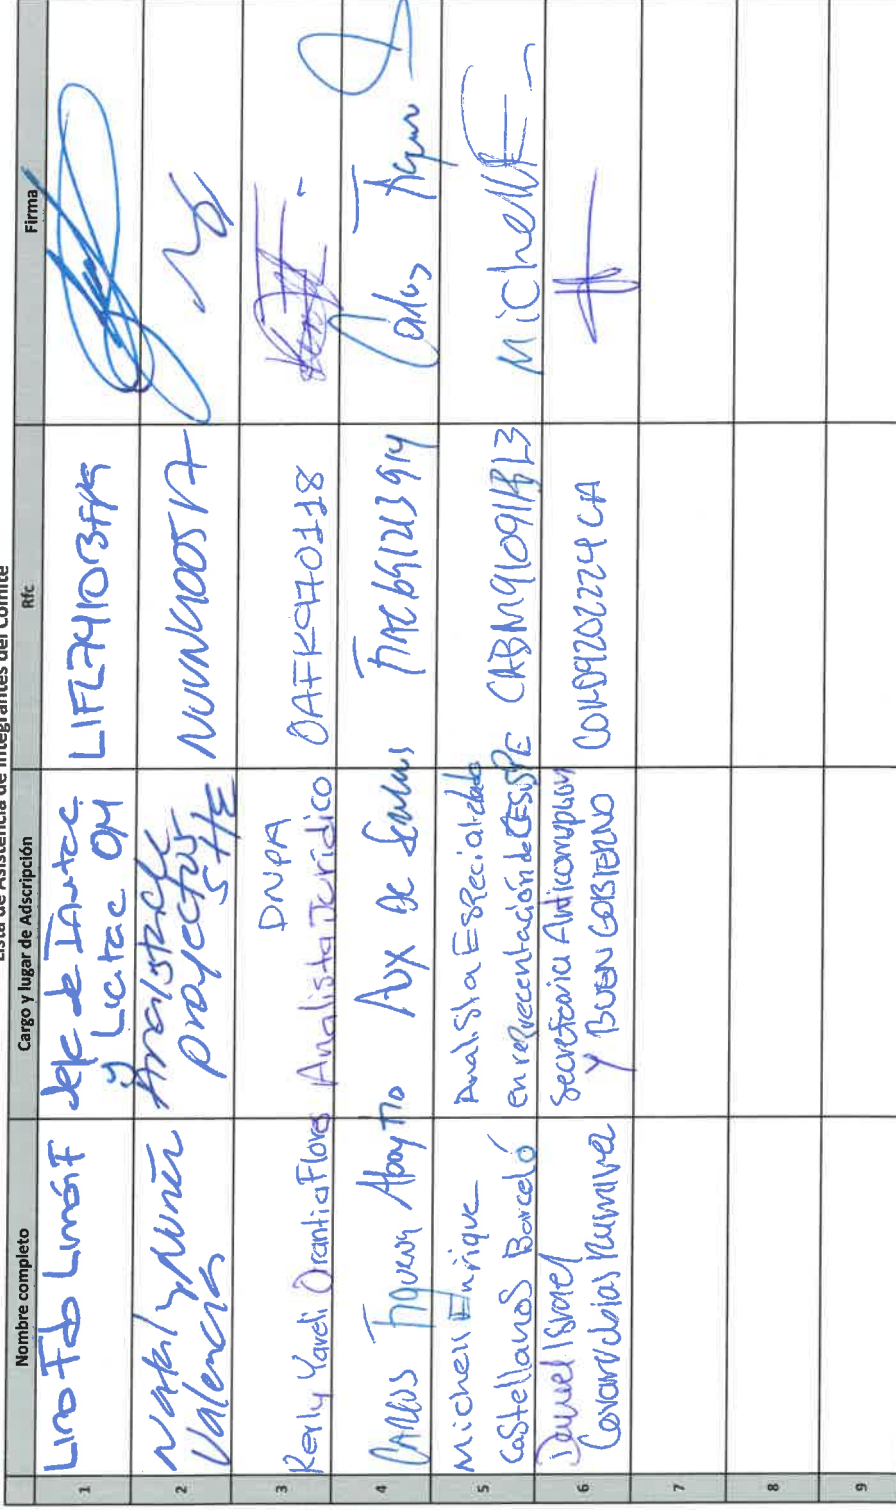 Lista de Asistencia de Integrantes del Comité
Nombre completo Cargo y lugar de Adscripción Rfc Firma
1 Lino Fdo Limón F Jefe de
y Licitac OM
LIFL741013FP9
2 Nataly Nuñez
Valencia
Analista de
proyectos
SHE
3 Kerly Yareli Orantia Flores
DNPA
Analista Jurídico
OAFK970118
4 Carlos Aboytio Aux de
Carlos
5 Michell Enrique
Castellanos Barceló
Analista Especializado
en reprecentación de CESISPE
Michell
6 Daniel Israel
Covarrubias Rumivea
Secretaria Anticorrupcion
y BUEN GOBIERNO
7
8
9